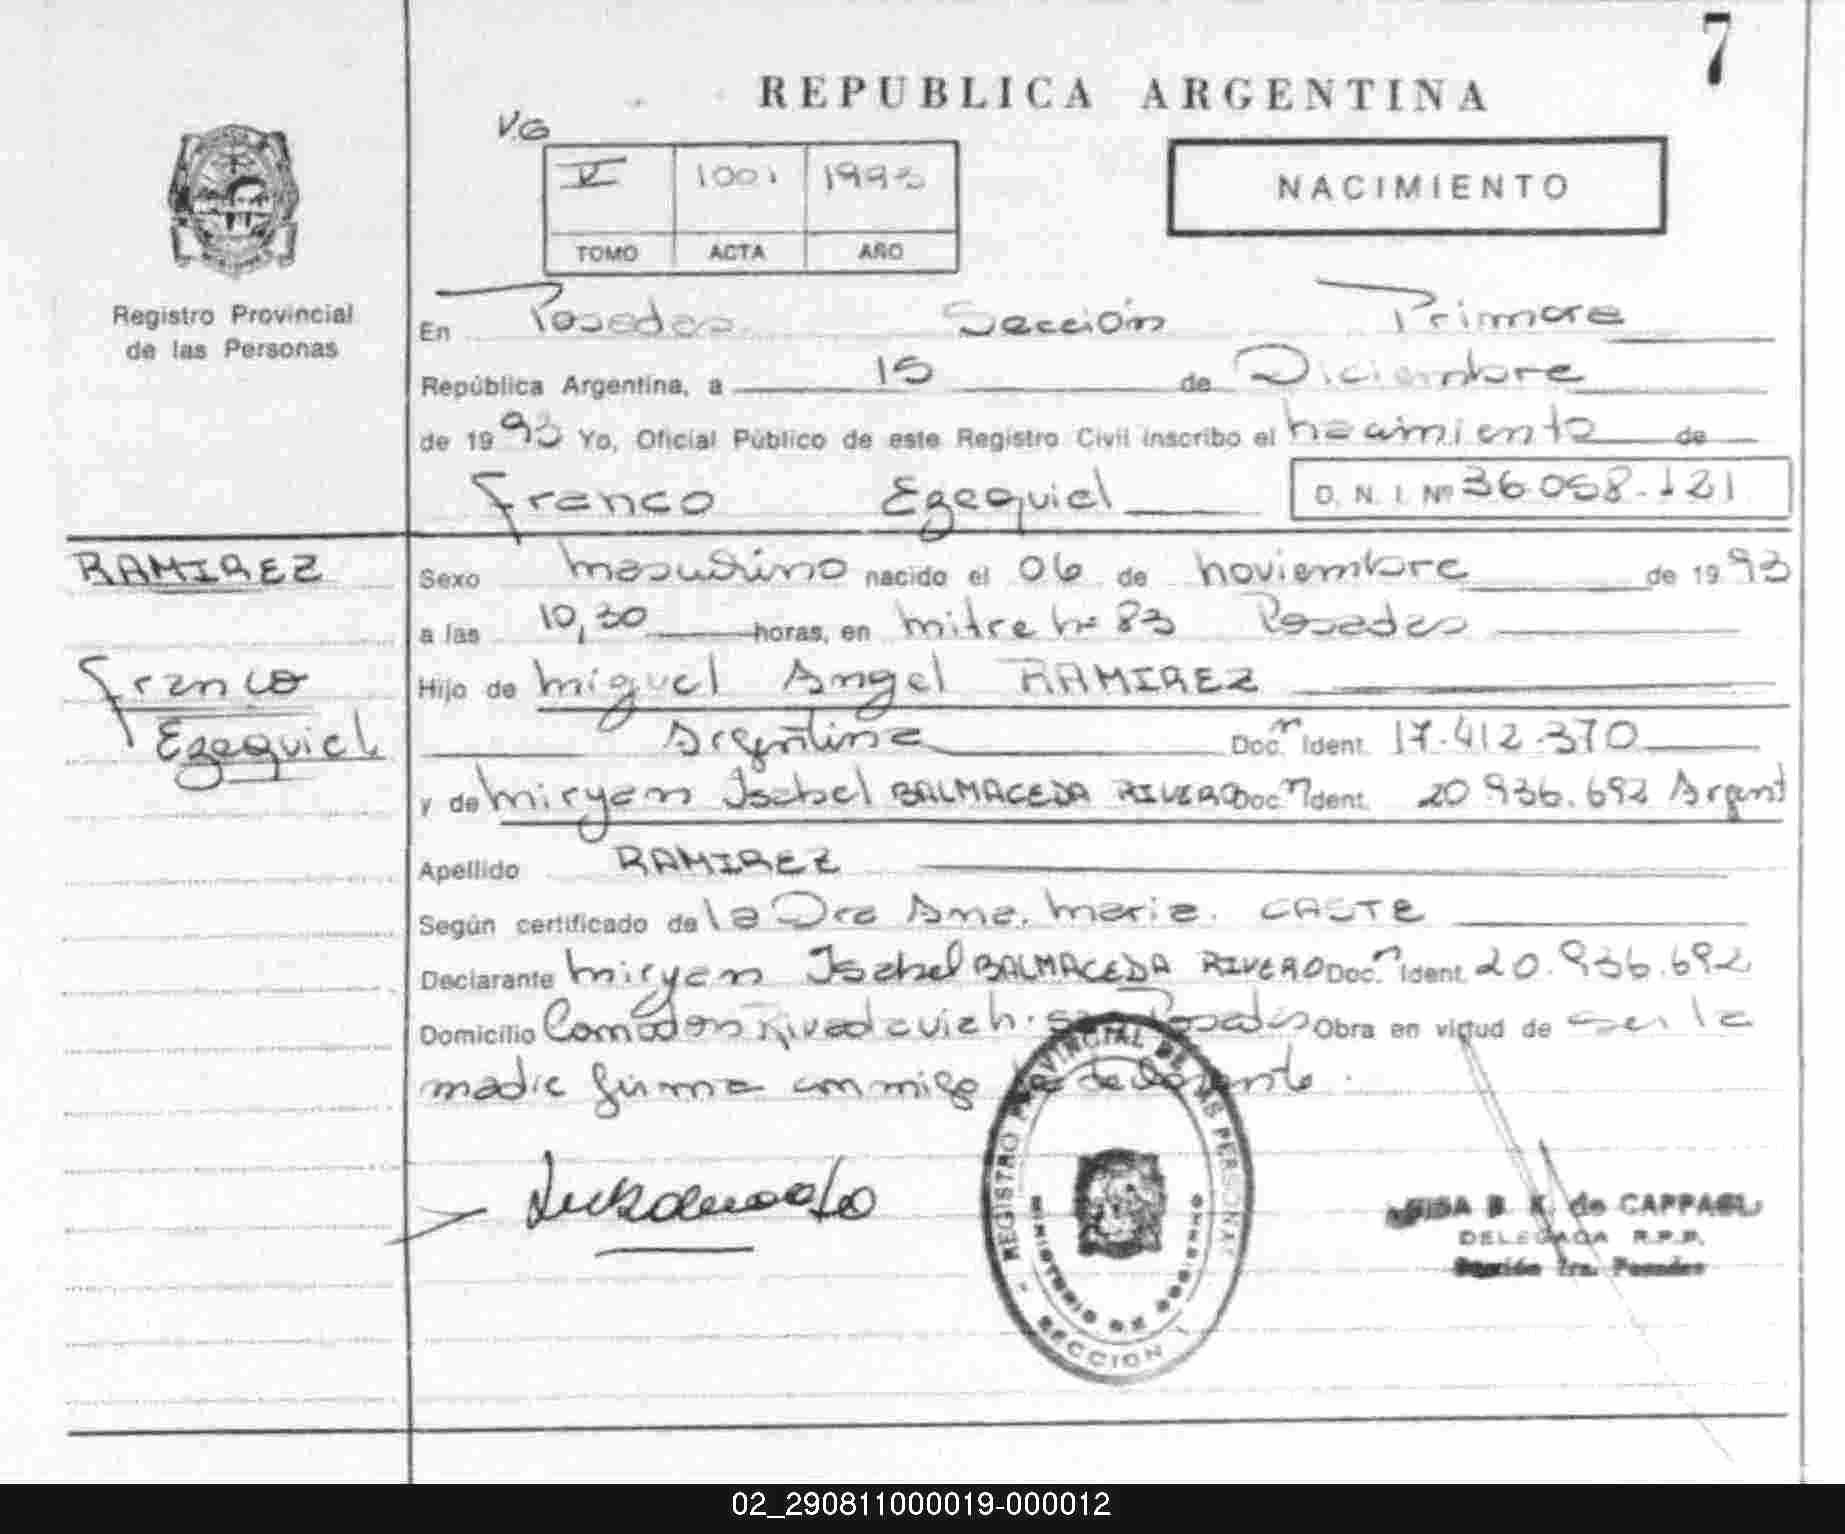 7
REPUBLICA ARGENTINA
V.G
V 1001 1993
NACIMIENTO
TOMO ACTA AÑO
Registro Provincial
de las Personas
En Posadas Sección Primera
República Argentina, a 15 de Diciembre
de 1993 Yo, Oficial Público de este Registro Civil inscribo el nacimiento de
Franco Ezequiel D. N. I. Nº 36.058.121
RAMIREZ
Franco
Ezequiel
Sexo masculino nacido el 06 de noviembre de 1993
a las 10,30 horas, en mitre nº 83 Posadas
Hijo de Miguel Angel RAMIREZ
Argentina Doc. Ident. 17.412.370
y de Miryan Isabel BALMACEDA RIVERO Doc. Ident. 20.936.692 Argent
Apellido RAMIREZ
Según certificado de la Dra Ana. Maria. CASTE
Declarante Miryan Isabel BALMACEDA RIVERO Doc. Ident. 20.936.692
Domicilio Rivadavia Posadas Obra en virtud de ser la
madre firma conmigo
REGISTRO PROVINCIAL DE LAS PERSONAS
MINISTERIO DE GOBIERNO
SECCION 1
B. K. de
DELEGADA R.P.P.
Sección 1ra. Posadas
02_290811000019-000012